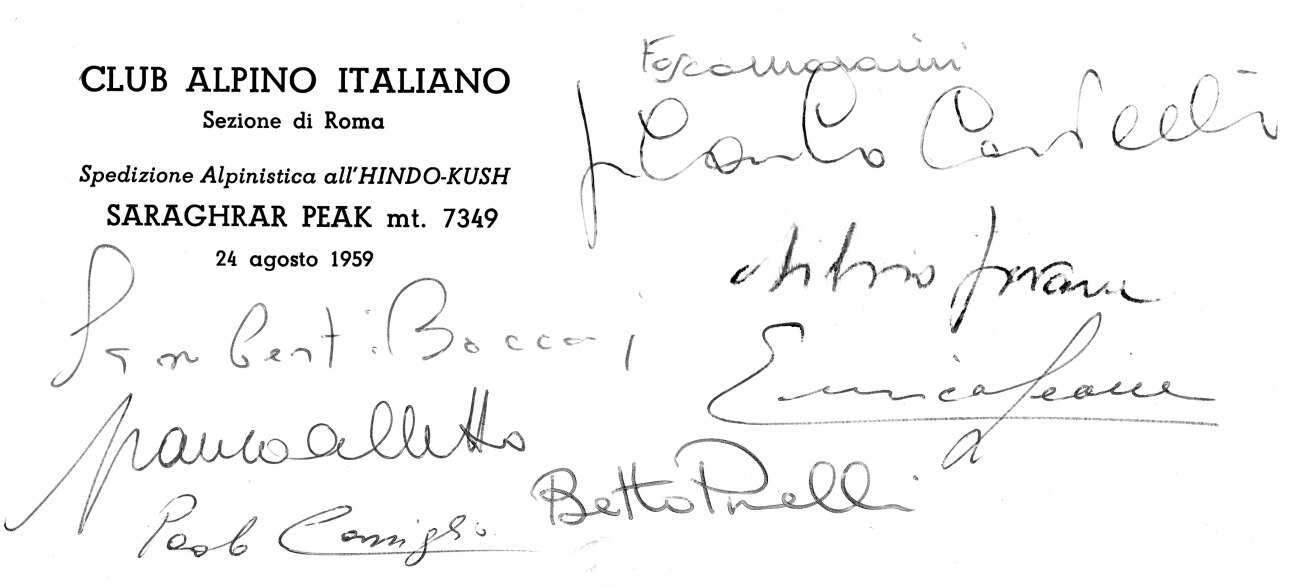 CLUB ALPINO ITALIANO
Sezione di Roma
Spedizione Alpinistica all'HINDO-KUSH
SARAGHRAR PEAK mt. 7349
24 agosto 1959
Fosco Maraini
Castelli
Silvio Jovane
Enrico Leone
Lamberti Bocconi
Franco Alletto
Betto Pinelli
Paolo Consiglio